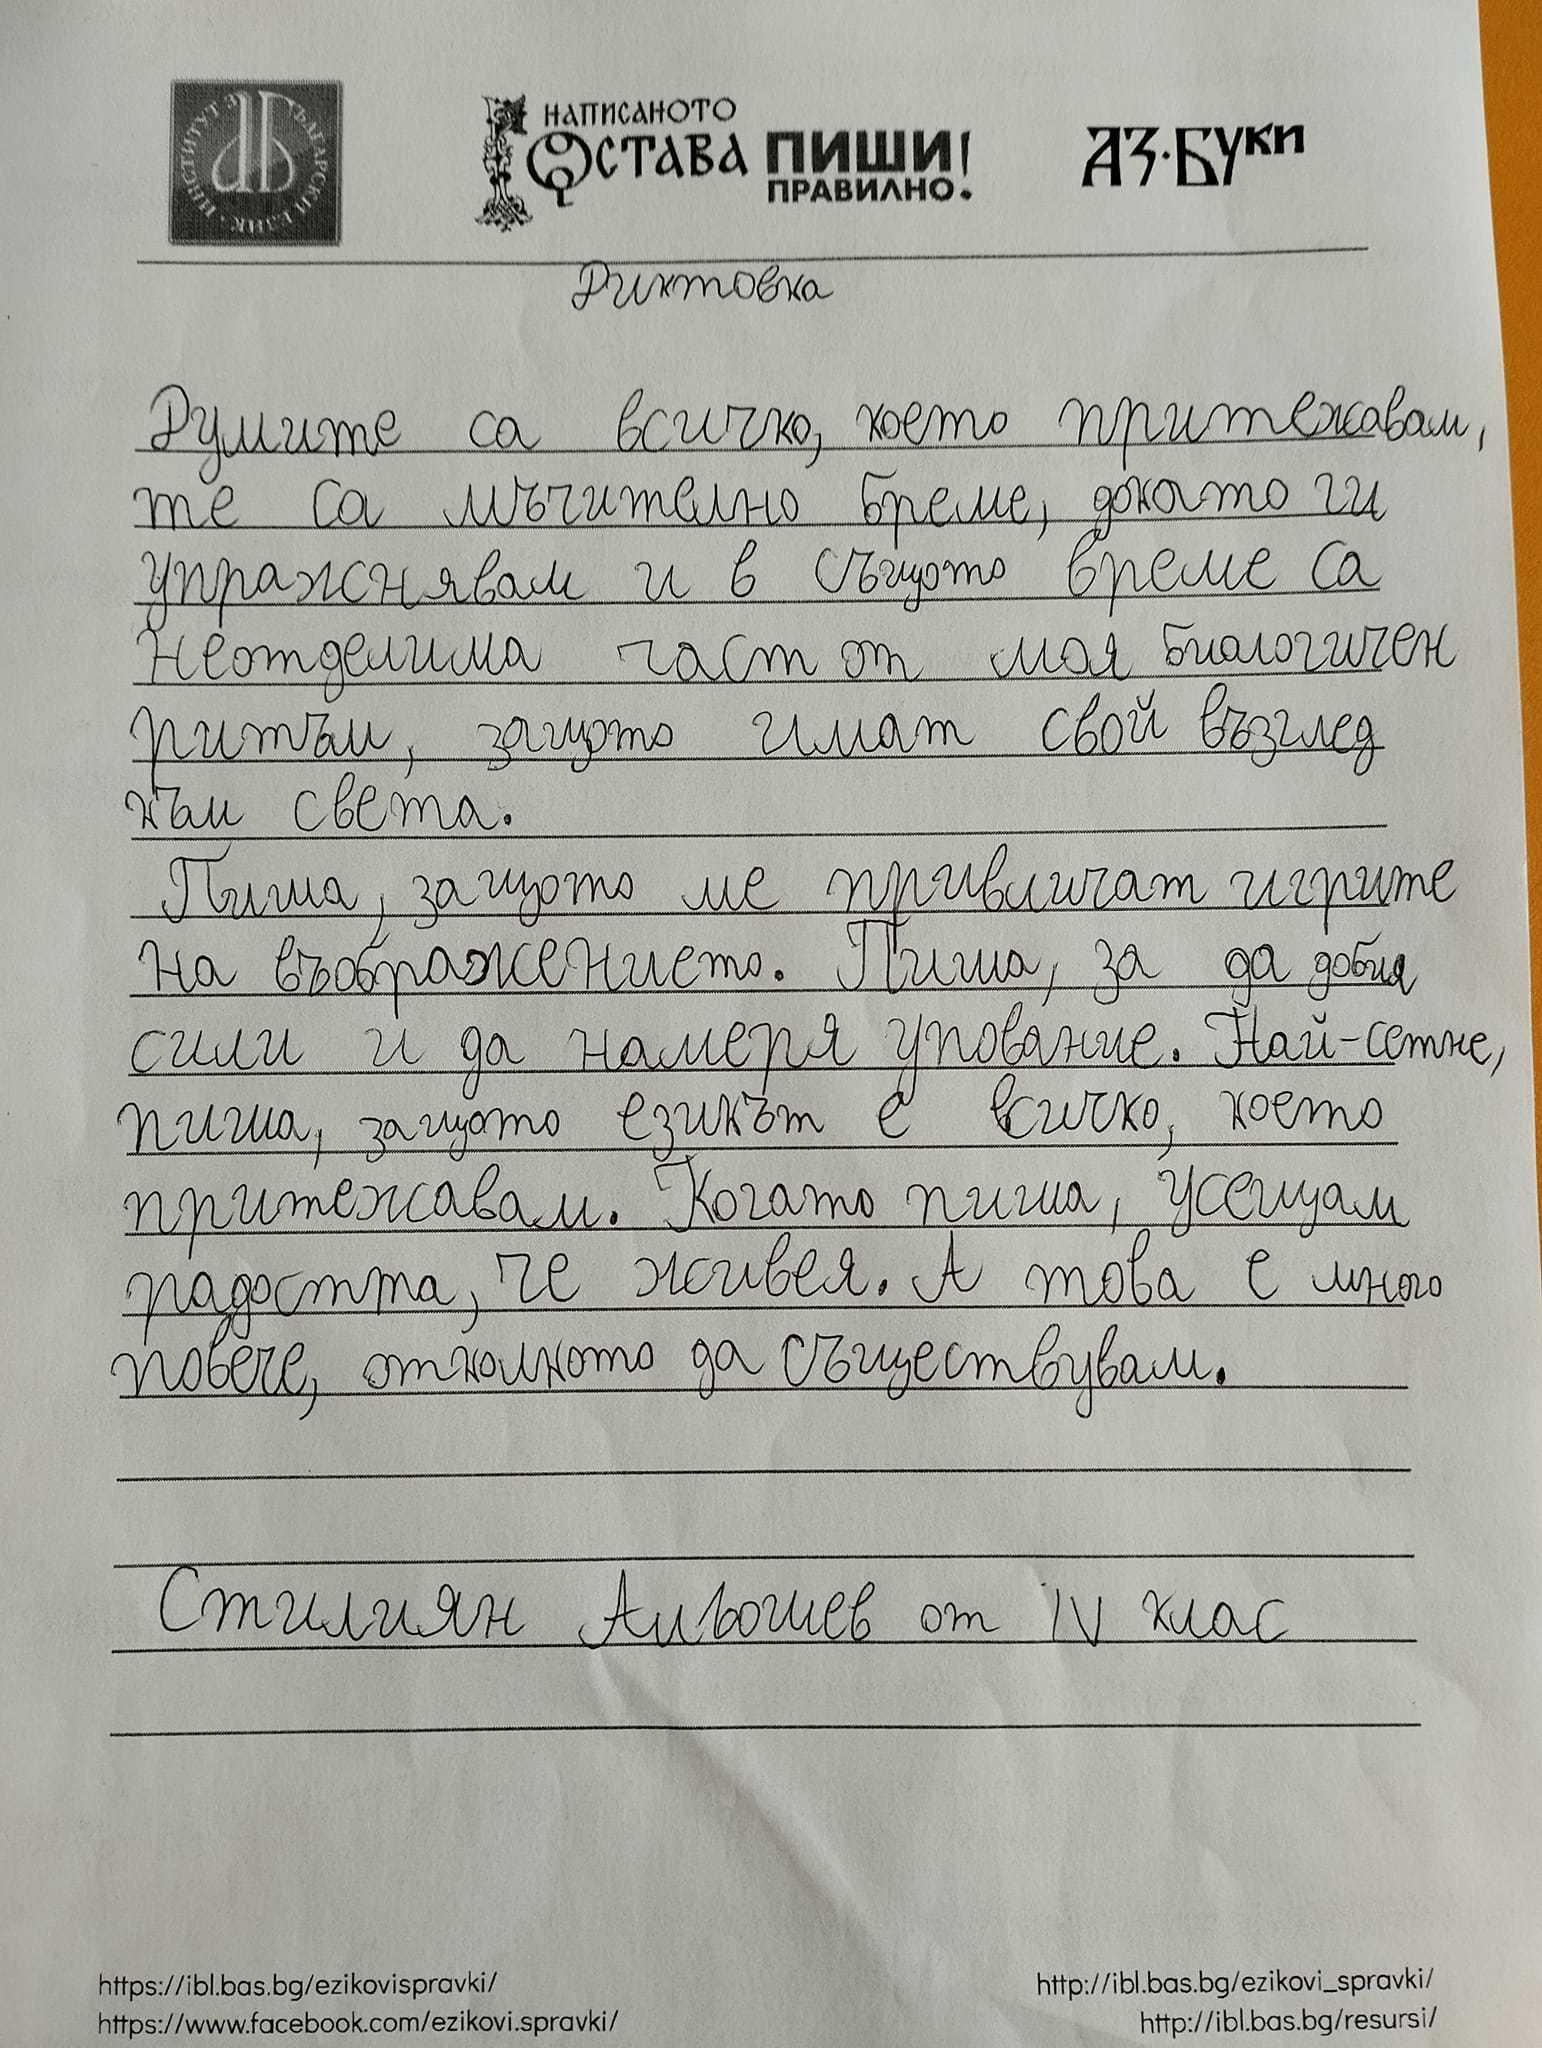 ИНСТИТУТ ЗА БЪЛГАРСКИ ЕЗИК
НАПИСАНОТО
ОСТАВА ПИШИ
ПРАВИЛНО!
АЗ·БУКИ
Диктовка
Думите са всичко, което притежавам,
те са мъчително бреме, докато ги
упражнявам и в същото време са
неотделима част от моя биологичен
ритъм, защото имат свой възглед
към света.
Пиша, защото ме привличат игрите
на въображението. Пиша, за да добия
сили и да намеря упование. Най-сетне,
пиша, защото езикът е всичко, което
притежавам. Когато пиша, усещам
радостта, че живея. А това е много
повече, отколкото да съществувам.
Стилиян от IV клас
https://ibl.bas.bg/ezikovispravki/ http://ibl.bas.bg/ezikovi_spravki/
https://www.facebook.com/ezikovi.spravki/ http://ibl.bas.bg/resursi/